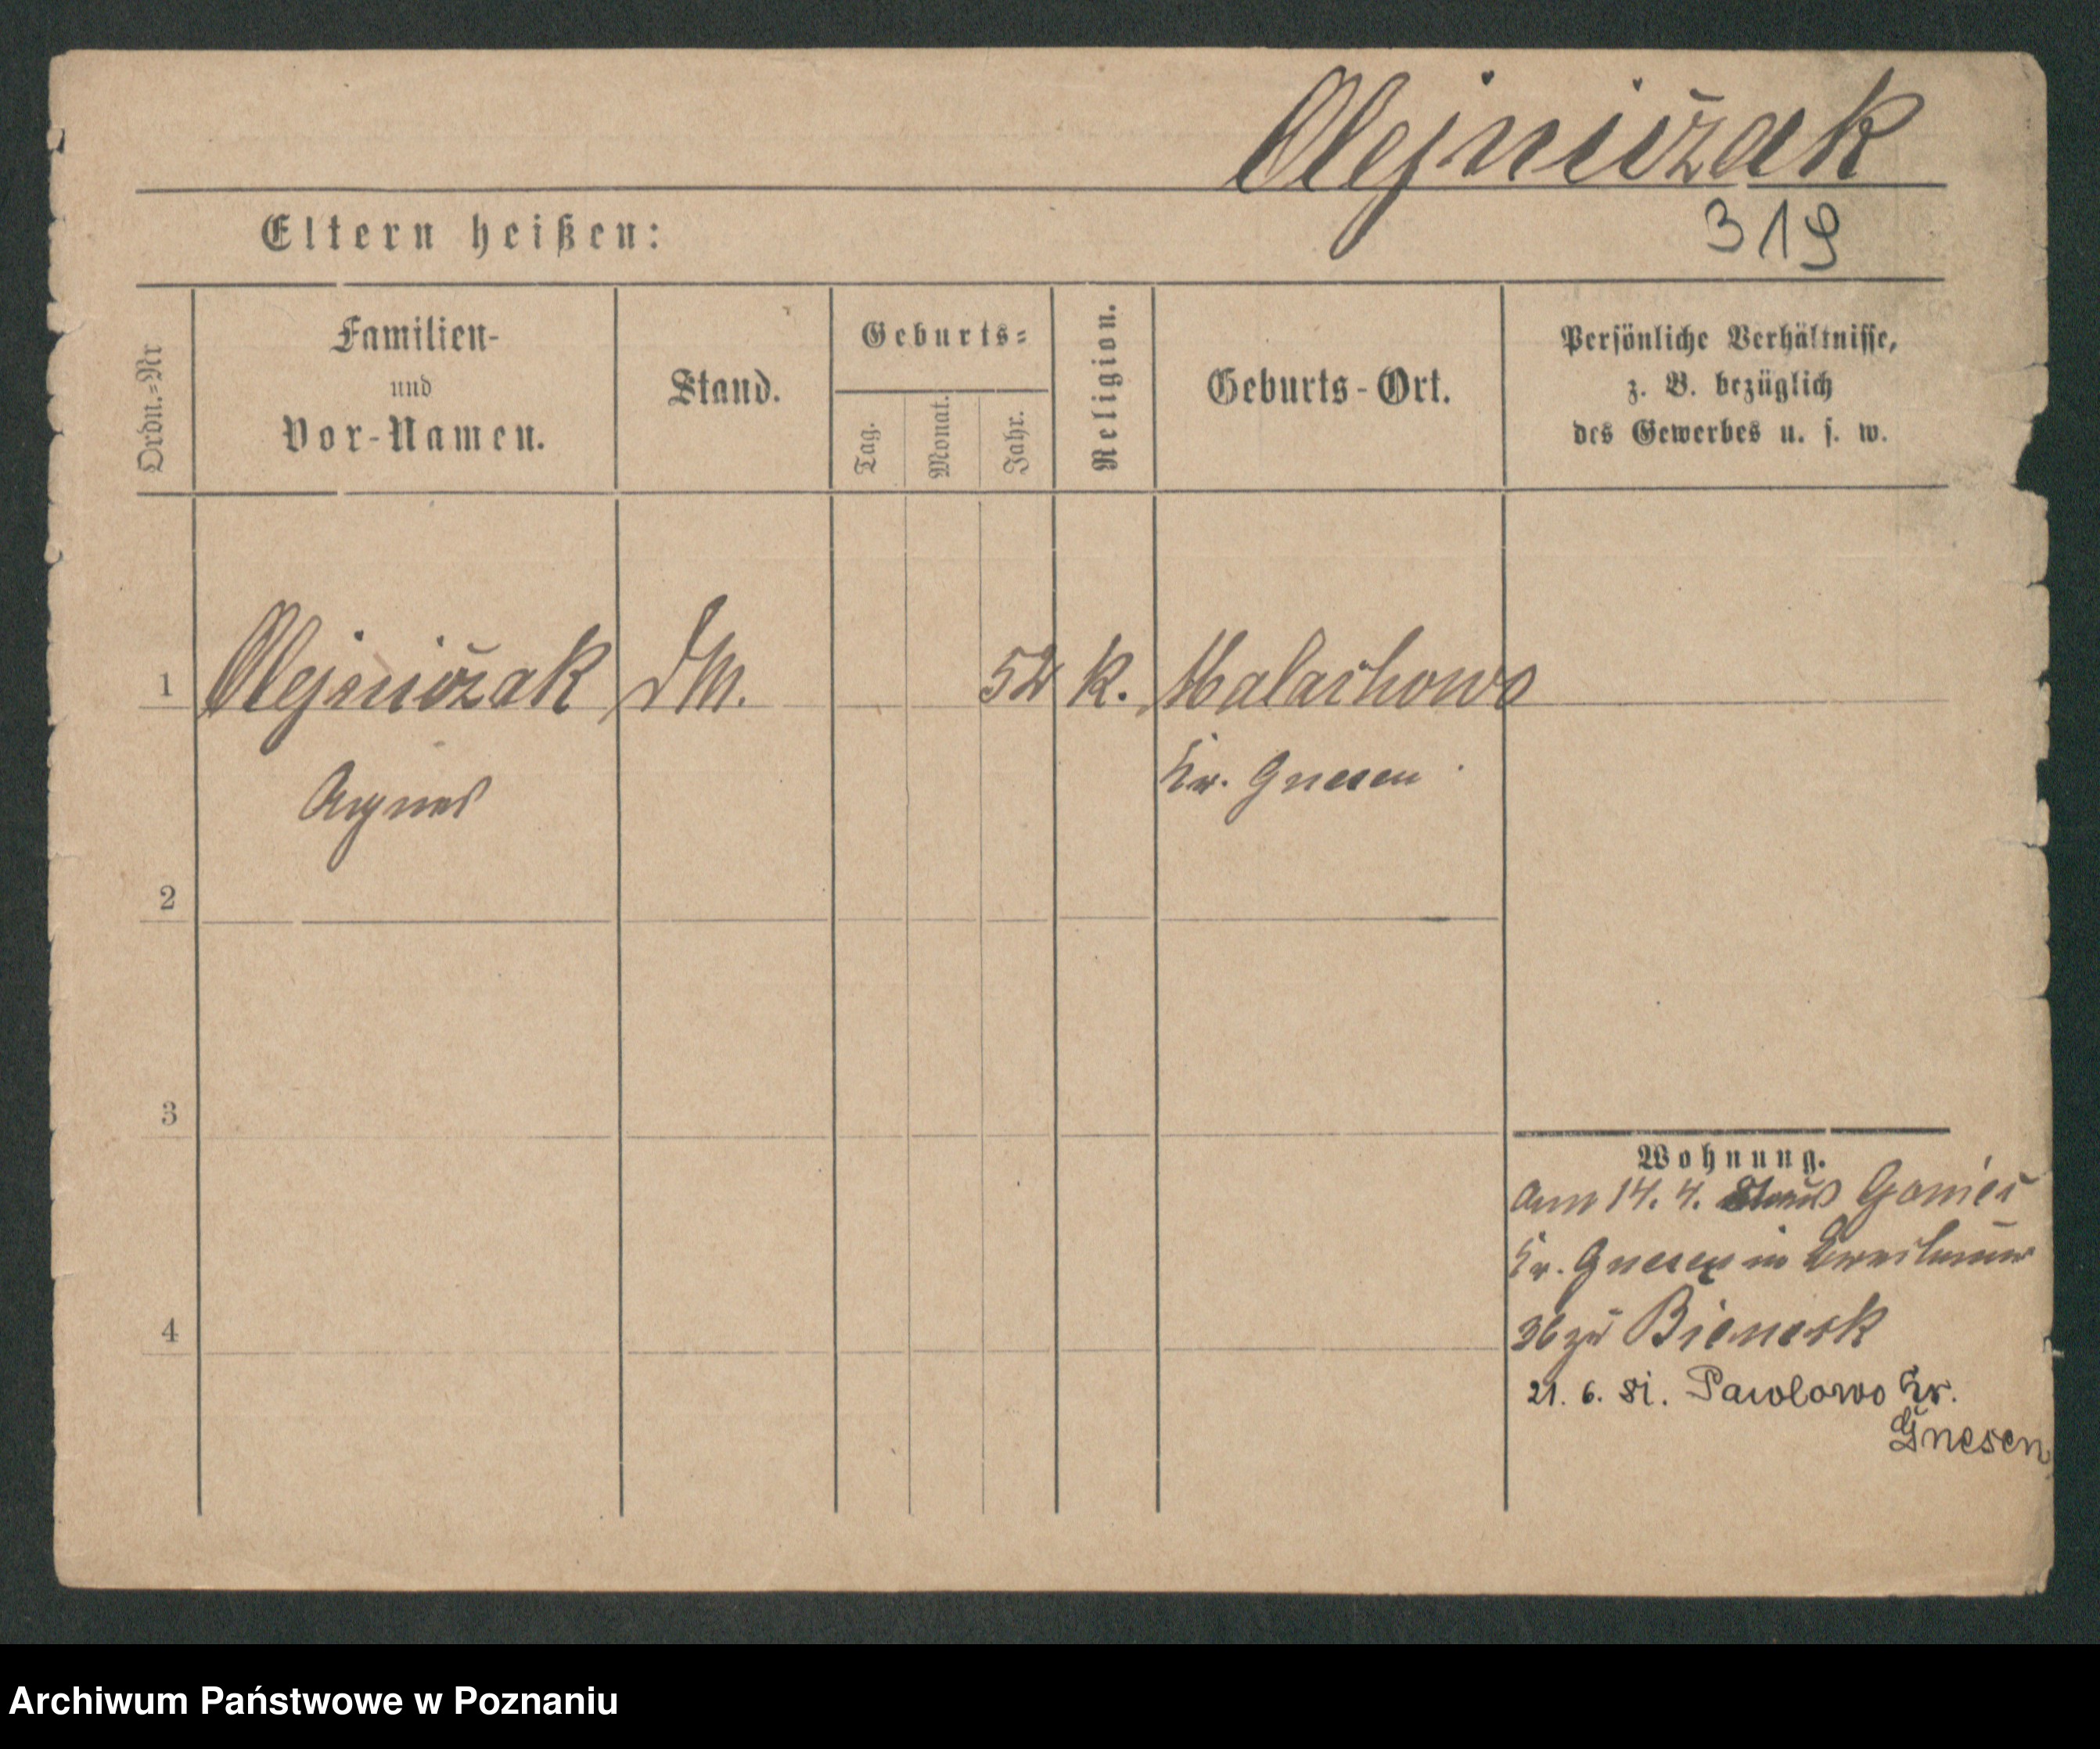 Olejniczak
319
Eltern heißen:
Ordn.=Nr
Familien-
und
Vor-Namen.
Stand.
Geburts=
Tag.
Monat.
Jahr.
Religion.
Geburts-Ort.
Persönliche Verhältnisse,
z. B. bezüglich
des Gewerbes u. s. w.
1 Olejniczak 52 k. Malachowo
Agnes Kr. Gnesen
2
3
4
Wohnung.
am 14. 4. aus
Kr. Gnesen in
36 zu
21. 6. 81. Pawlowo Kr.
Gnesen
Archiwum Państwowe w Poznaniu